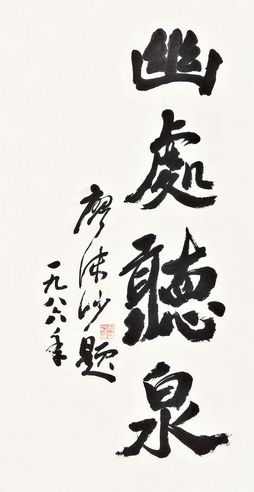 幽處聽泉
廖沫沙題
一九八六年